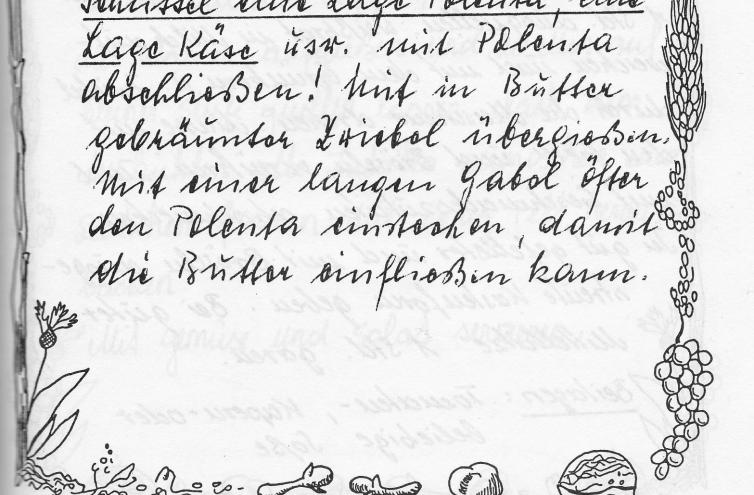 Schüssel eine Lage Polenta, eine
Lage Käse usw. mit Polenta
abschließen! Mit in Butter
gebräunter Zwiebel übergießen.
Mit einer langen Gabel öfter
den Polenta einstechen, damit
die Butter einfließen kann.